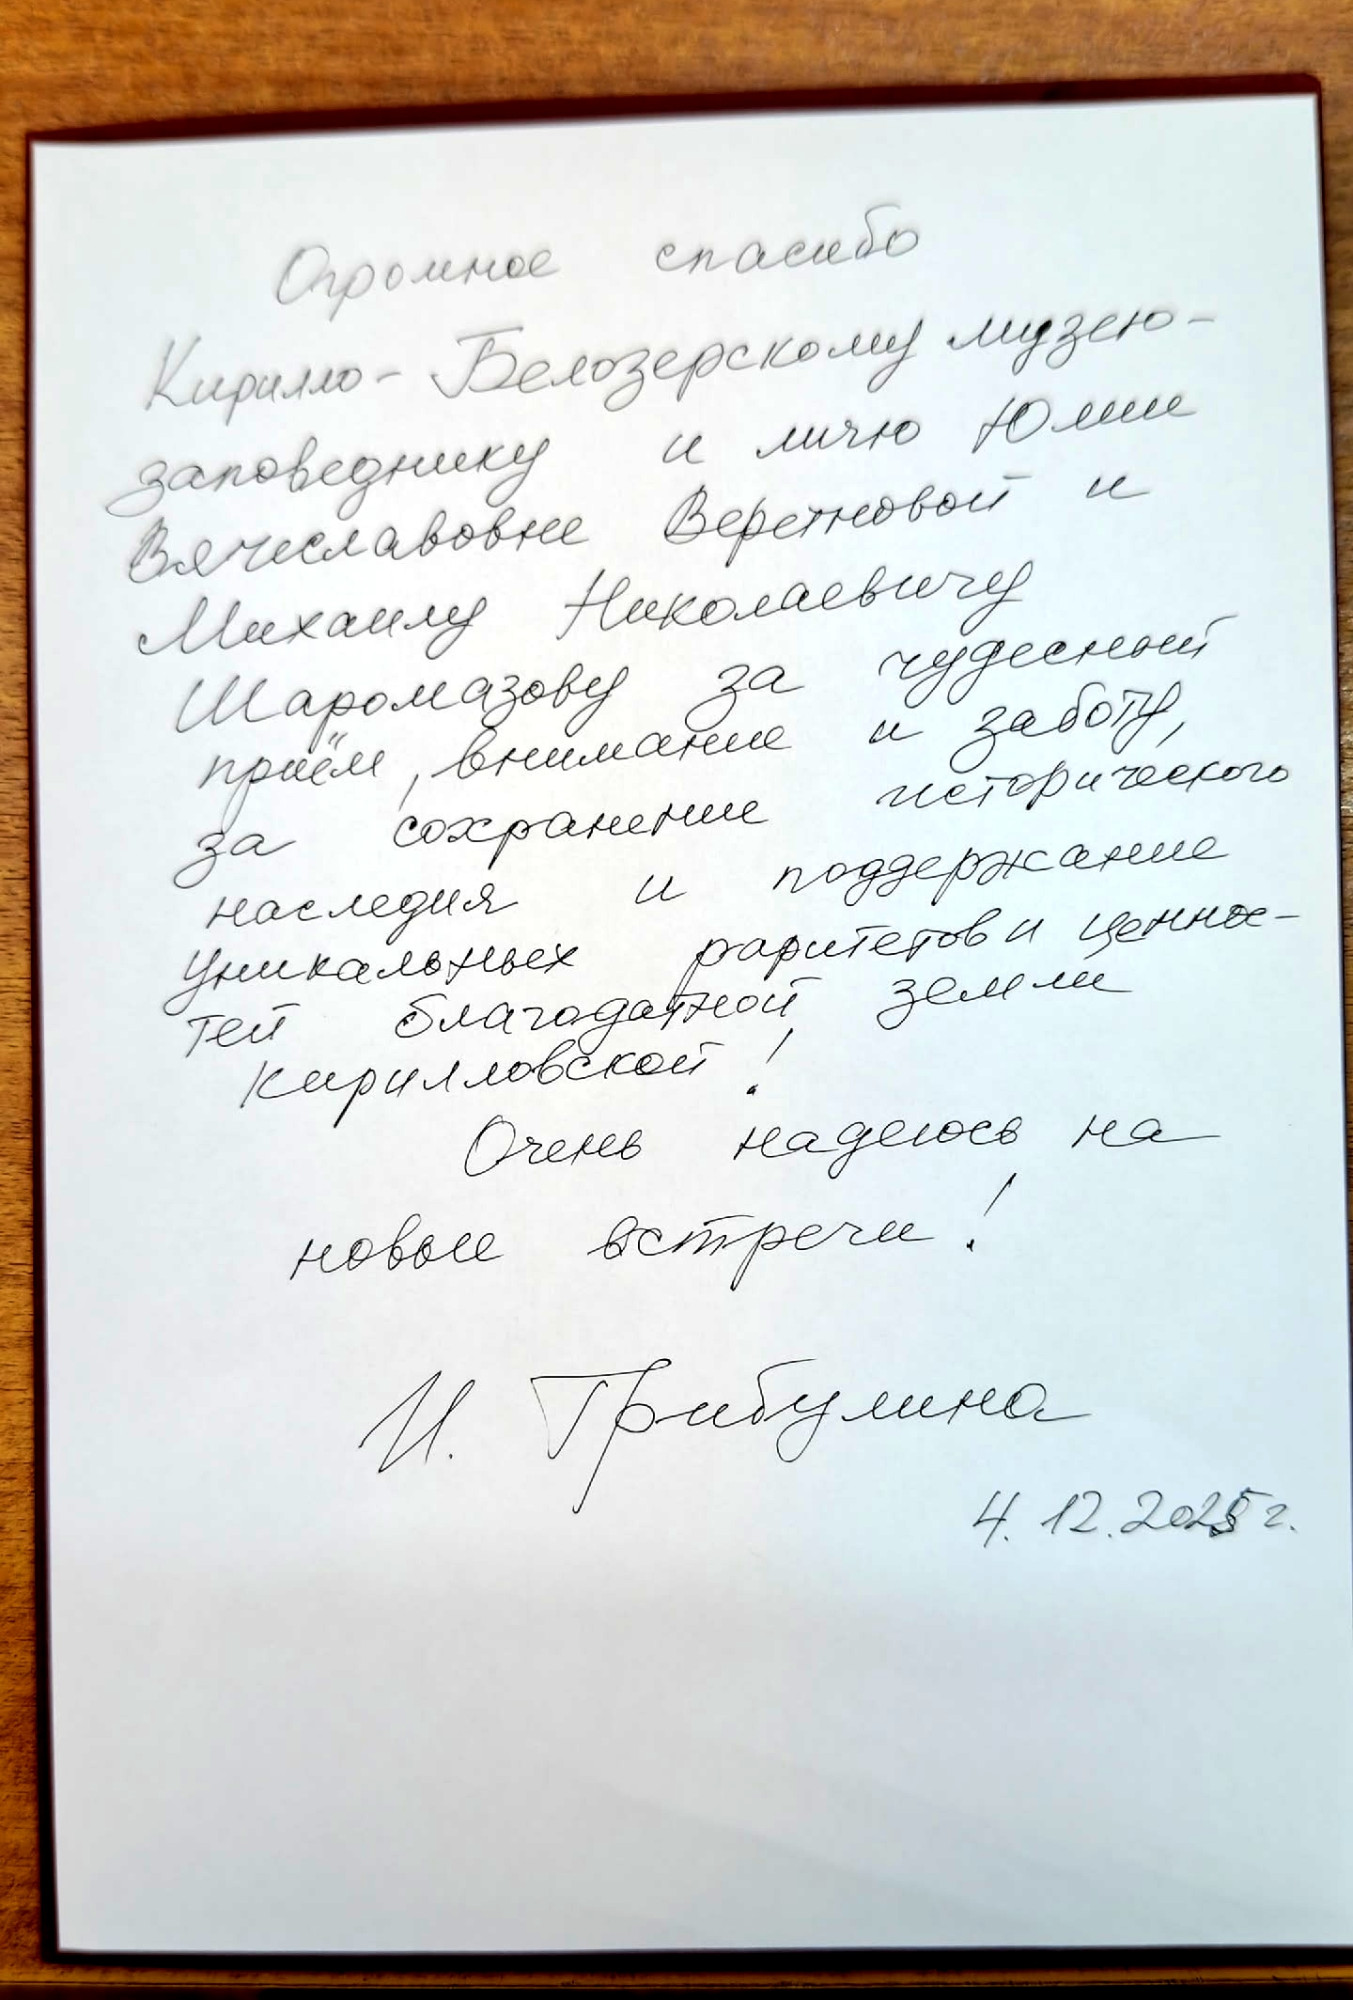 Огромное спасибо
Кирилло-Белозерскому музею-
заповеднику и лично Юлии
Вячеславовне Веретновой и
Михаилу Николаевичу
Шаромазову за чудесный
приём, внимание и заботу,
за сохранение исторического
наследия и поддержание
уникальных раритетов и ценнос-
тей благодатной земли
Кирилловской!
Очень надеюсь на
новые встречи!
И. Грибулина
4.12.2025 г.